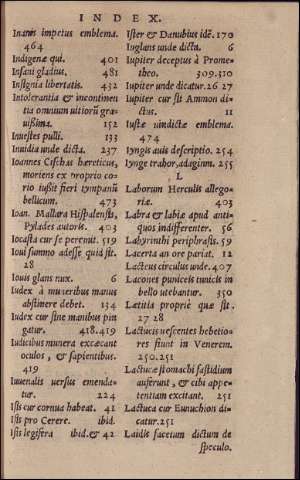 INDEX.
Inanis impetus emblema.
464
Indigenæ qui. 401
Insani gladius, 481
Insignia libertatis. 432
Intolerantia & incontinen
tia omnium ultiorũ gra-
uissima. 152
Inuestes pulli. 133
Inuidia unde dicta. 237
Ioannes Cischas hæreticus,
moriens ex proprio co-
rio iußit fieri tympanũ
bellicum. 473
Ioan. Mallara Hispalensis,
Pylades autoris. 403
Iocasta cur se peremit. 519
Ioui summo adesse quid sit.
28
Iouis glans nux. 6
Iudex à muneribus manus
abstinere debet. 154
Iudex cur sine manibus pin
gatur. 418.419
Iudicibus munera excæcant
oculos, & sapientibus.
419
Iuuenalis uersus emenda-
tur. 224
Isis cur cornua habeat. 41
Isis pro Cerere. ibid.
Isis legifera ibid.& 42
Ister & Danubius idẽ. 170
Iuglans unde dicta. 6
Iupiter deceptus à Prome-
theo. 309.310
Iupiter unde dicatur. 26 27
Iupiter cur sit Ammon di-
ctus. 11
Iustæ uindictæ emblema.
474
Iyngis auis descriptio. 254
Iynge trahor, adagium. 255
L
Laborum Herculis allego-
riæ. 403
Labra & labia apud anti-
quos indifferenter. 56
Labyrinthi periphrasis. 59
Lacerta an ore pariat. 12
Lacteus circulus unde. 407
Lacones puniceis tunicis in
bello utebantur. 350
Lætitia propriè quæ sit.
27 28
Lactucis uescentes hebetio-
res fiunt in Venerem.
250.251
Lactucæ stomachi fastidium
auferunt, & cibi appe-
tentiam excitant. 251
Lactuca cur Eunuchion di-
catur. 251
Laidis facetum dictum de
speculo.